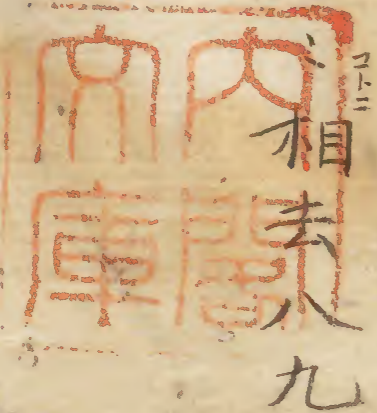 コトニ
〻相去八九
内閣
文庫